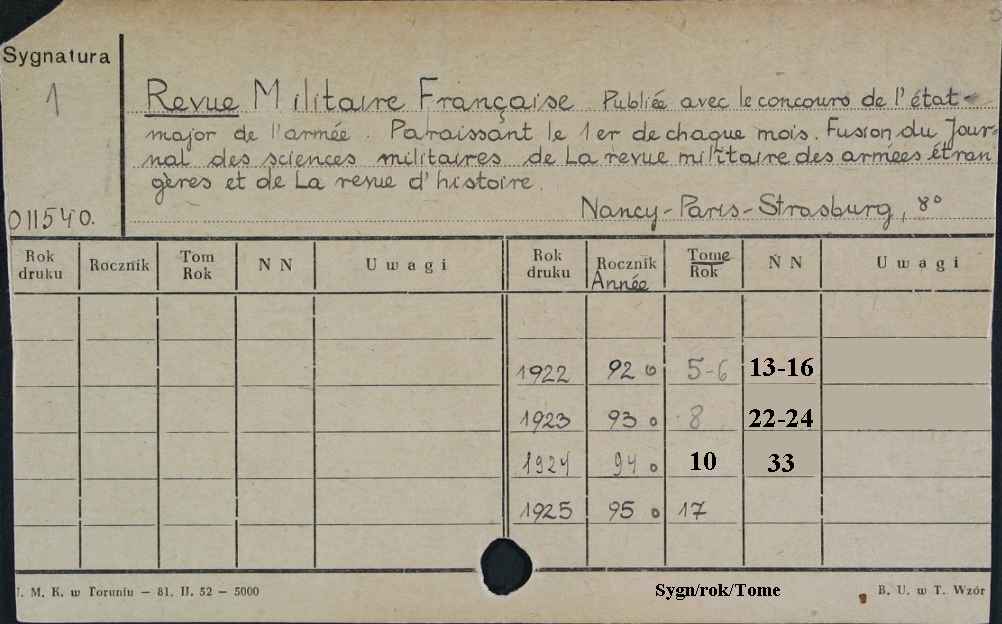 Sygnatura
1
011540.
Revue Militaire Française Publiée avec le concours de l'état-
major de l'armée. Paraissant le 1er de chaque mois. Fusion du Jour-
nal des sciences militaires de La revue militaire des armées étran
gères et de La revue d'histoire.
Nancy-Paris-Strasburg, 8°
Rok druku Rocznik Tom Rok N N Uwagi Rok druku Rocznik Année Tome Rok N N Uwagi
1922 92 o 5-6 13-16
1923 93 o 8 22-24
1924 94 o 10 33
1925 95 o 17
U. M. K. w Toruniu — 81. II. 52 — 5000
Sygn/rok/Tome
B. U. w T. Wzór